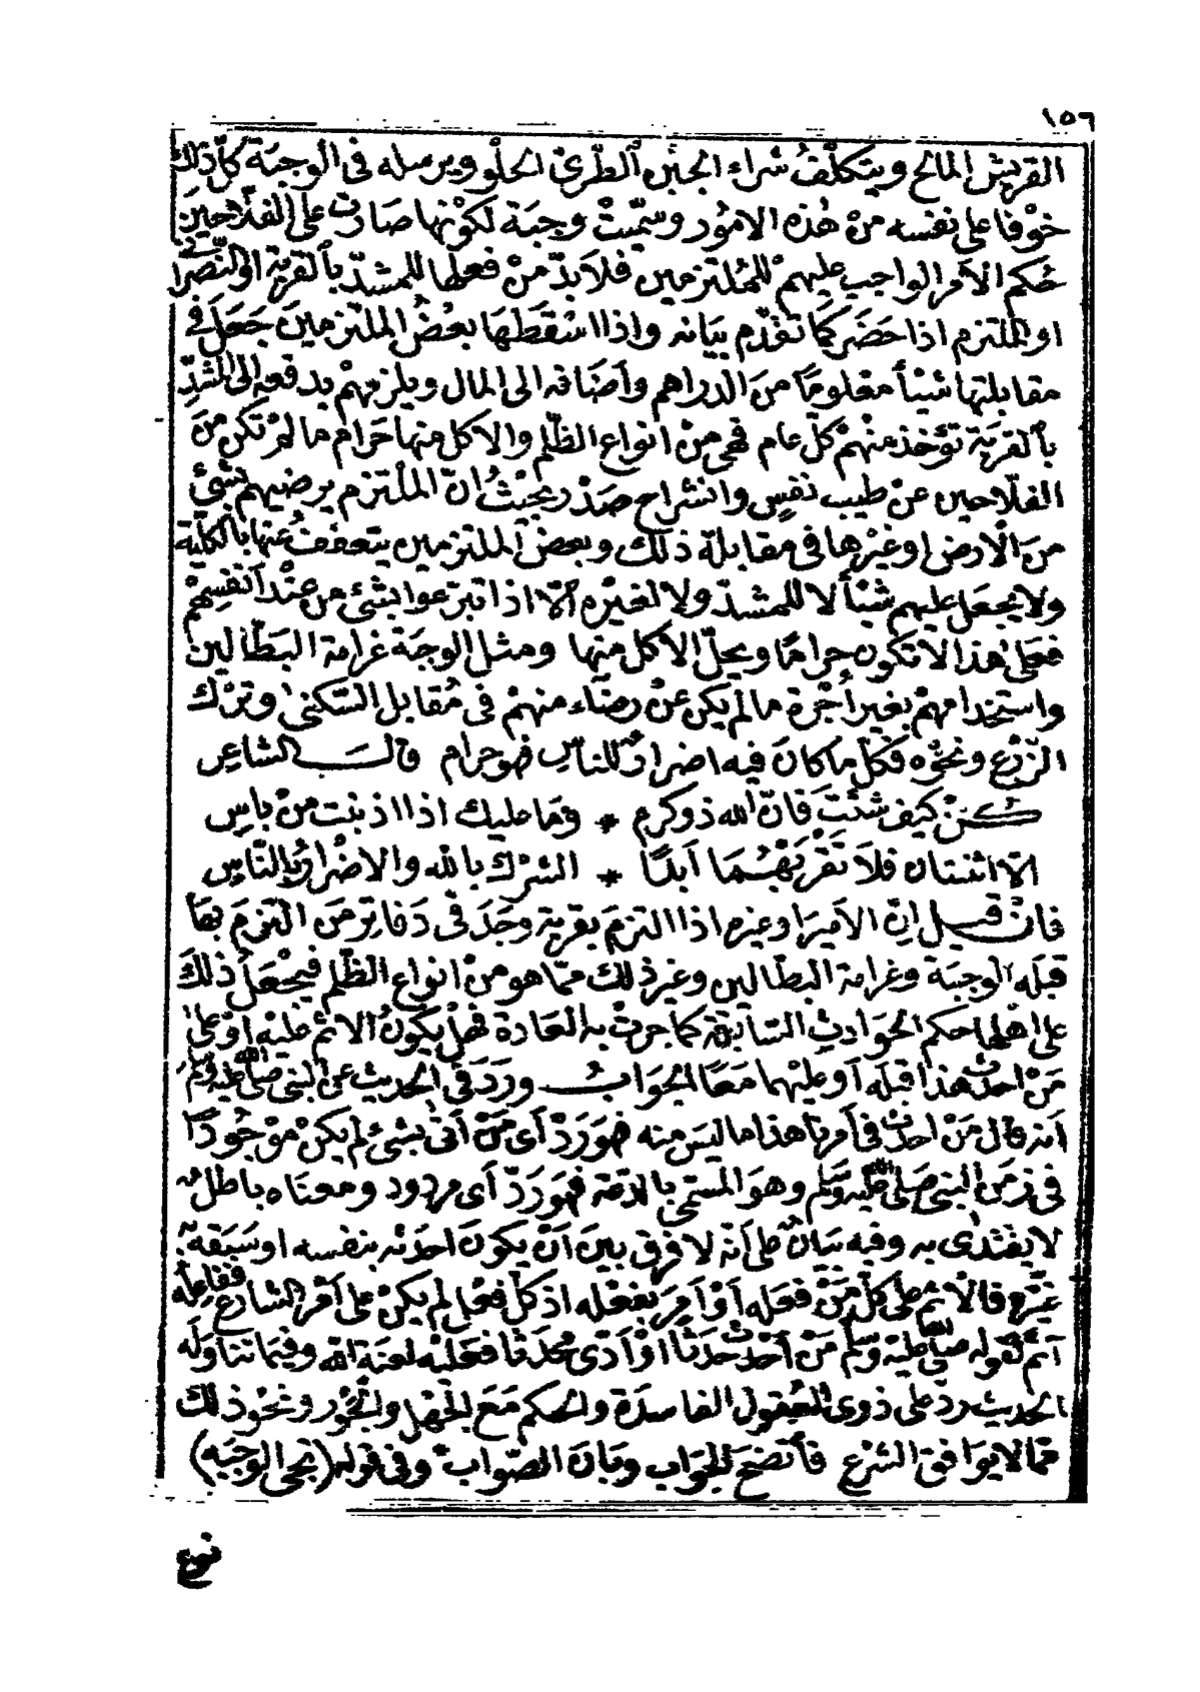 ١٥٦
القريش المالح ويتكلّف شراء الجبن الطّرىّ الحلو ويرسله فى الوجبة كلّ ذلك
خوفا على نفسه من هذه الامور وسمّيت وجبة لكونها صارت على الفلاحين
حكم الامر الواجب عليهم للملتزمين فلا بدّ من فعلها للمشدّ بالقرية او النّصرانى
او الملتزم اذا حضر كما تقدّم بيانه واذا اسقطها بعض الملتزمين جعل فى
مقابلتها شيئا معلوما من الدراهم واضافه الى المال ويلزمهم بدفعه الى المشدّ
بالقرية تؤخذ منهم كلّ عام فهى من انواع الظّلم والاكل منها حرام ما لم تكن من
الفلّاحين عن طيب نفس وانشراح صدر بحيث انّ الملتزم يرضيهم بشئ
من الارض او غيرها فى مقابلة ذلك وبعض الملتزمين يتعفّف عنها بالكلّيّة
ولا يجعل عليهم شيئا لا للمشدّ ولا لغيره الّا اذا تبرّعوا بشئ من عند انفسهم
فعلى هذا لا تكون حراما ويحلّ الاكل منها ومثل الوجبة غرامة البطّالين
واستخدامهم بغير اجرة ما لم يكن عن رضاء منهم فى مقابل السّكنى وترك
الزّرع ونحوه فكلّ ما كان فيه اضرار للناس فهو حرام قال الشاعر
كن كيف شئت فانّ الله ذو كرم * وما عليك اذا اذنبت من باس
الّا اثنتان فلا تقربهما ابدًا * الشرك بالله والاضرار بالنّاس
فان قيل انّ الامير او غيره اذا التزم بقرية وجد فى دفاتر من التزم بها
قبله الوجبة وغرامة البطّالين وغير ذلك ممّا هو من انواع الظّلم فيجعل ذلك
على اهلها حكم الحوادث السّابقة كما جرت به العادة فهل يكون الاثم عليه او على
من احدث هذا قبله او عليهما معًا الجواب ورد فى الحديث عن النبى صلى الله عليه وسلم
انه قال من احدث فى امرنا هذا ما ليس منه فهو ردّ أى من أتى بشئ لم يكن موجودًا
فى زمن النبى صلى الله عليه وسلم وهو المسمّى بالبدعة فهو ردّ أى مردود ومعناه باطل
لا يقتدى به وفيه بيان على أنه لا فرق بين أن يكون احدثه بنفسه او سبقه به
غيره فالاثم على كلّ من فعله أو أمر بفعله اذ كلّ فعل لم يكن على أمر الشارع ففاعله
آثم لقوله صلى الله عليه وسلم من أحدث حدثا او آوى محدثا فعليه لعنة الله وفيما تناوله
الحديث ردّ على ذوى العقول الفاسدة والحكم مع الجهل والجور ونحو ذلك
ممّا لا يوافق الشرع فأتضح الجواب وبان الصّواب وفى قوله (تجى الوجبه)
نوع